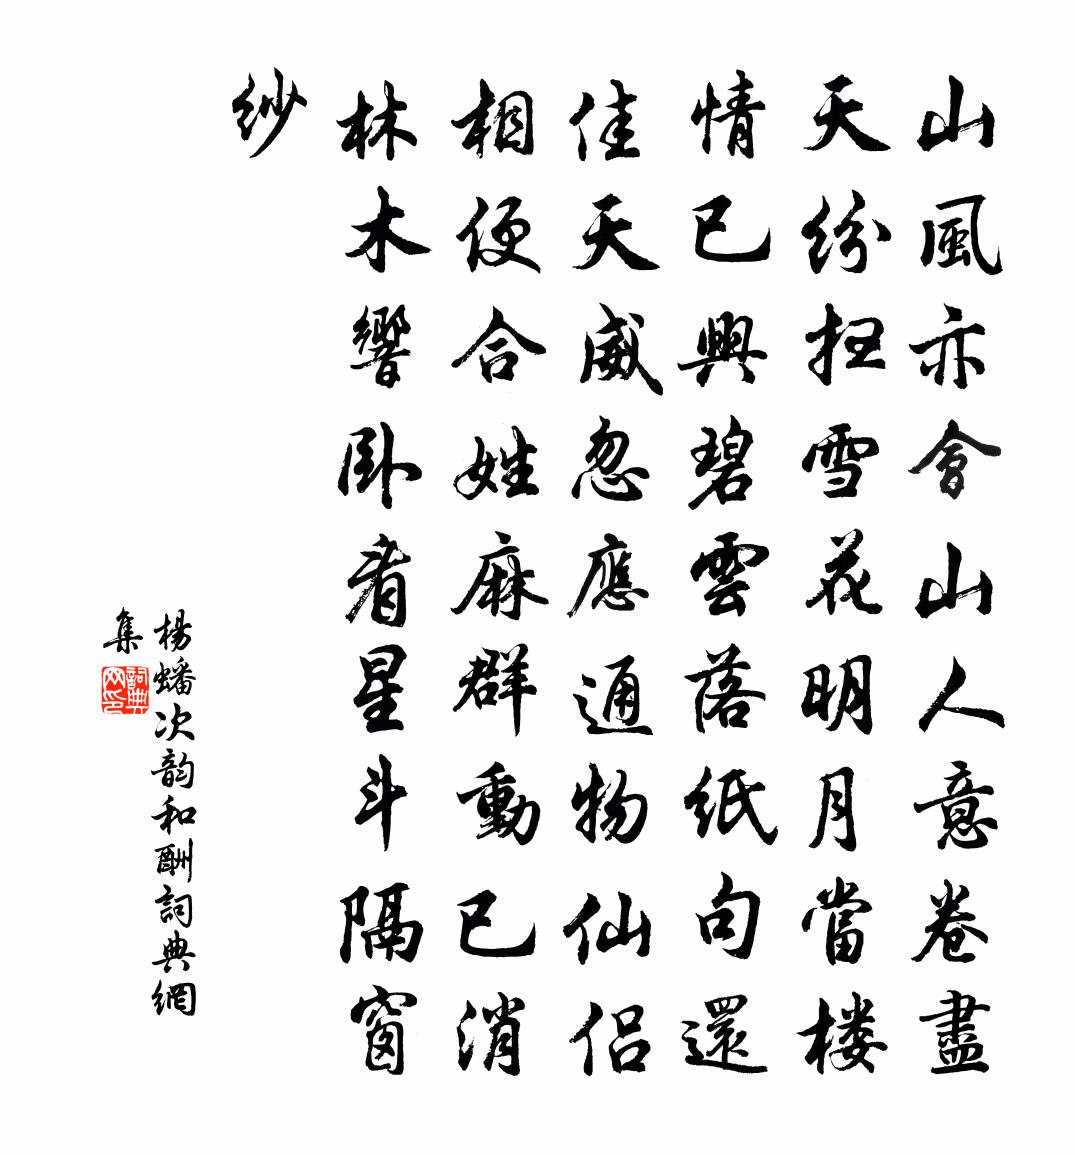 山風亦會山人意卷盡
天紛扫雪花明月當楼
情已興碧雲落紙句還
佳天威忽應通物仙侣
相便合姓麻群動已消
林木響卧看星斗隔窗
纱
楊蟠次韵和酬詞典網
集
詞典
网印